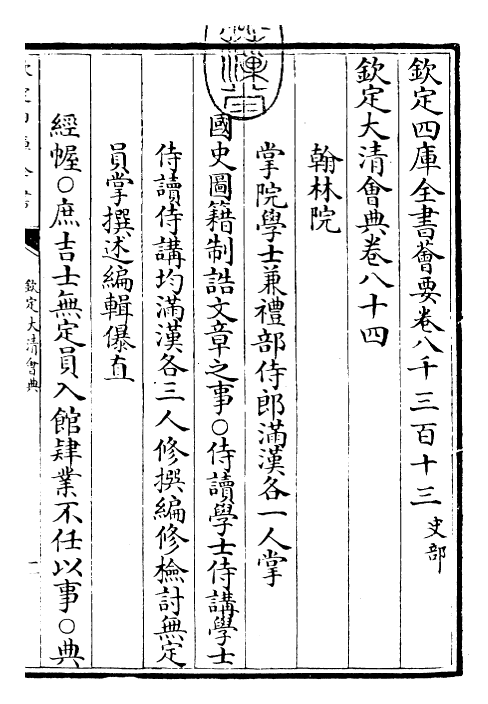 欽定四庫全書薈要卷八千三百十三 史部
欽定大清會典卷八十四
翰林院
掌院學士兼禮部侍郎滿漢各一人掌
國史圖籍制誥文章之事○侍讀學士侍講學士
侍讀侍講均滿漢各三人修撰編修檢討無定
員掌撰述編輯儤直
經幄○庶吉士無定員入館肄業不任以事○典
欽定大清會典
一